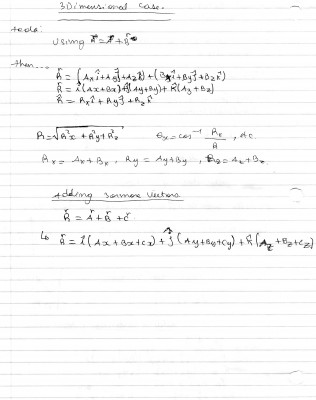 3 Dimensional Case.
using R⃗ = A⃗ + B⃗
then...
R⃗ = (Axî + Ayĵ + Azk̂) + (Bxî + Byĵ + Bzk̂)
R⃗ = î(Ax+Bx) + ĵ(Ay+By) + k̂(Az+Bz)
R⃗ = Rxî + Ryĵ + Rzk̂
R = √R²x + R²y + R²z θx = cos⁻¹ Rx/R, etc.
Rx = Ax + Bx, Ry = Ay+By, Rz = Az+Bz.
Adding Vectors
R⃗ = A⃗ + B⃗ + C⃗
↳ R⃗ = î(Ax+Bx+Cx) + ĵ(Ay+By+Cy) + k̂(Az+Bz+Cz)